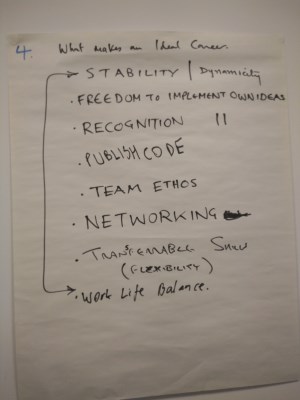 4. What makes an Ideal Career
STABILITY | Dynamicity
· FREEDOM TO IMPLEMENT OWN IDEAS
· RECOGNITION ||
· PUBLISH CODE
· TEAM ETHOS
· NETWORKING
· TRANSFERRABLE SKILLS
(FLEXIBILITY)
· Work Life Balance.